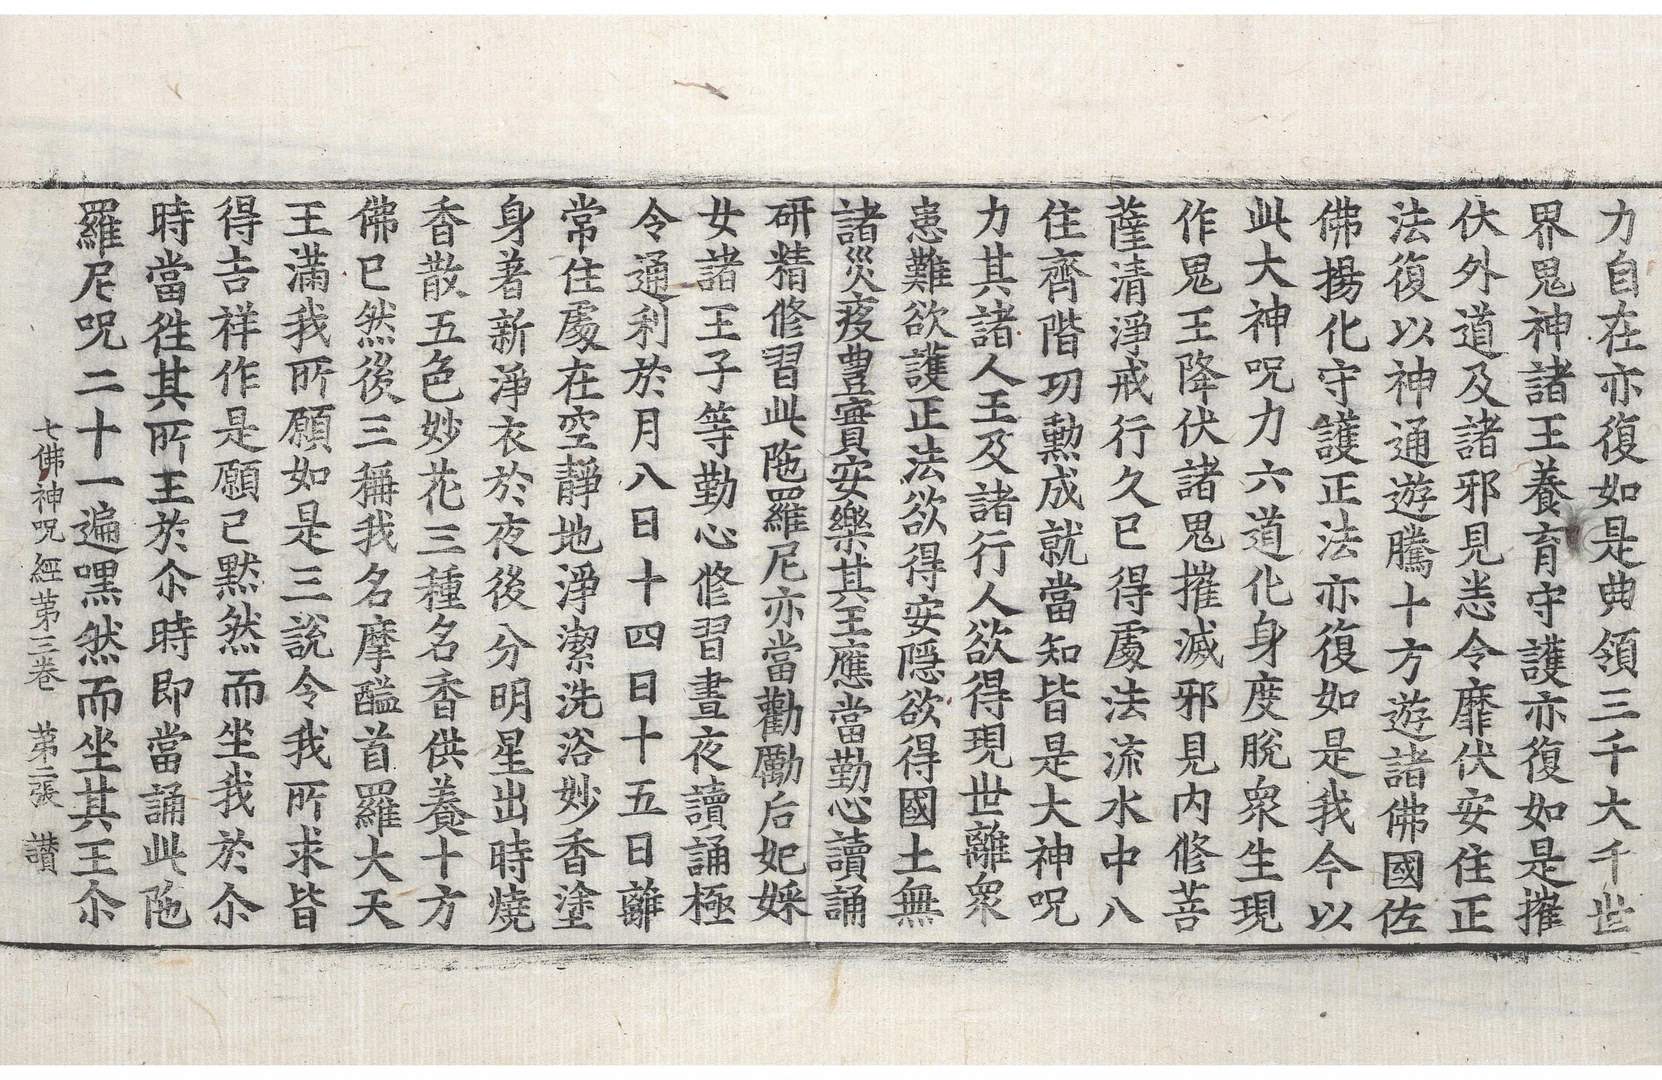 力自在亦復如是典領三千大千世
界鬼神諸王養育守護亦復如是摧
伏外道及諸邪見恙令靡伏安住正
法復以神通遊騰十方遊諸佛國佐
佛揚化守護正法亦復如是我今以
此大神呪力六道化身度脫衆生現
作鬼王降伏諸鬼摧滅邪見内修菩
薩清淨戒行久已得處法流水中八
住齊階功勲成就當知皆是大神呪
力其諸人王及諸行人欲得現世離衆
患難欲護正法欲得安隱欲得國土無
諸災疫豊實安樂其王應當勤心讀誦
研精修習此陁羅尼亦當勸勵后妃婇
女諸王子等勤心修習晝夜讀誦極
令通利於月八日十四日十五日離
常住處在空靜地淨潔洗浴妙香塗
身著新淨衣於夜後分明星出時燒
香散五色妙花三種名香供養十方
佛已然後三稱我名摩醯首羅大天
王滿我所願如是三說令我所求皆
得吉祥作是願已黙然而坐我於尒
時當徃其所王於尒時即當誦此陁
羅尼呪二十一遍嘿然而坐其王尒
七佛神呪經苐三卷 苐二張 讃